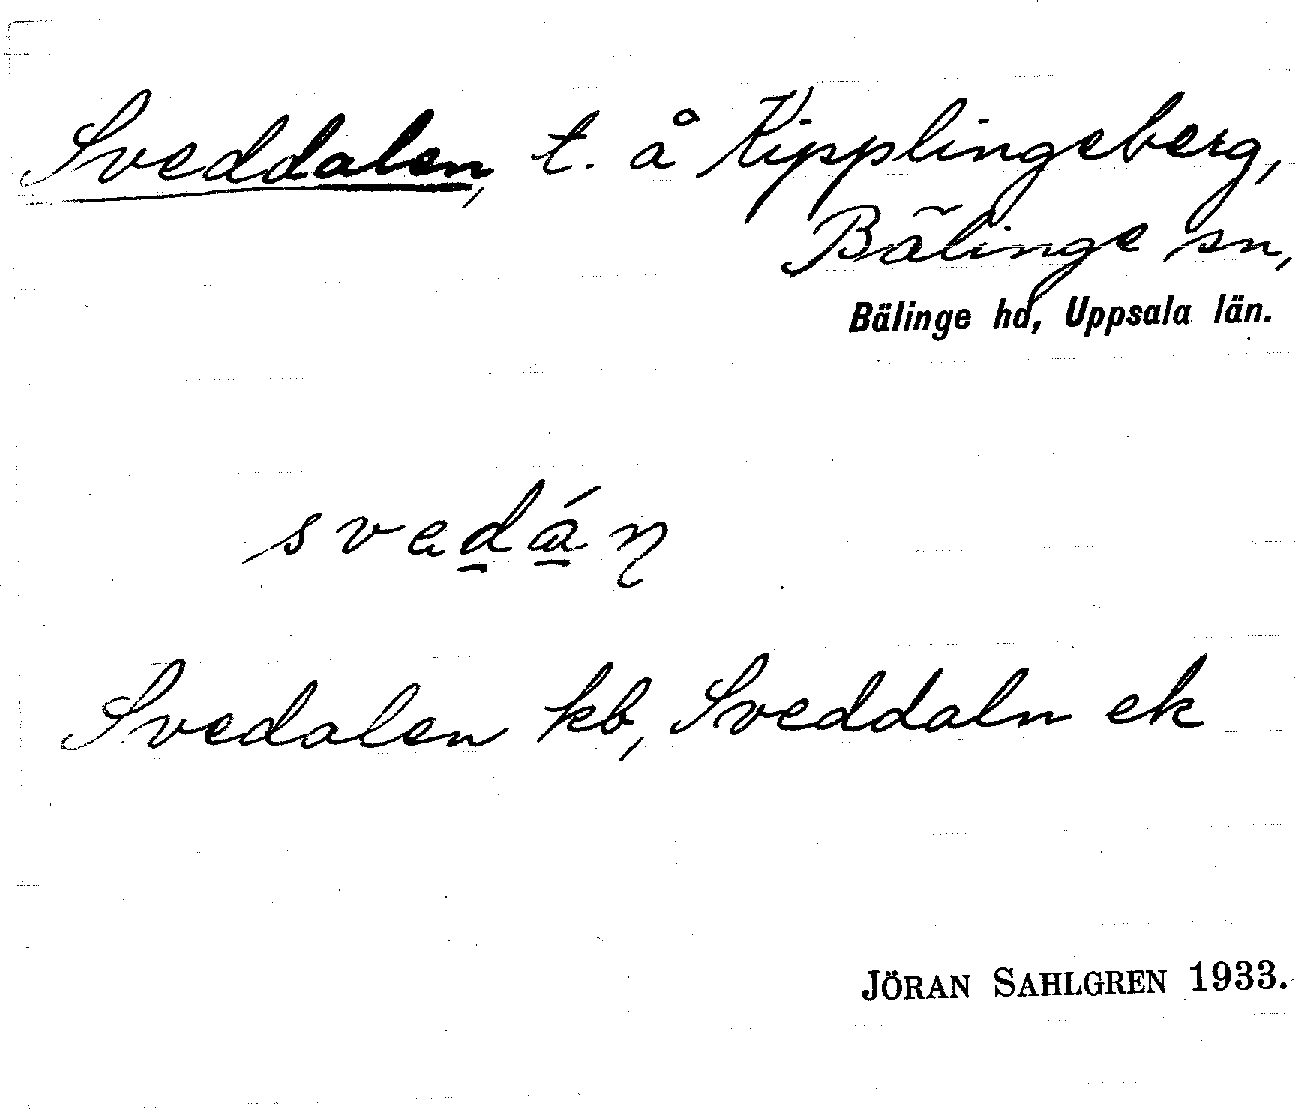 Sveddalen, t. å Kipplingeberg,
Bälinge sn,
Bälinge hd, Uppsala län.
Svedalen kb, Sveddaln ek
JÖRAN SAHLGREN 1933.